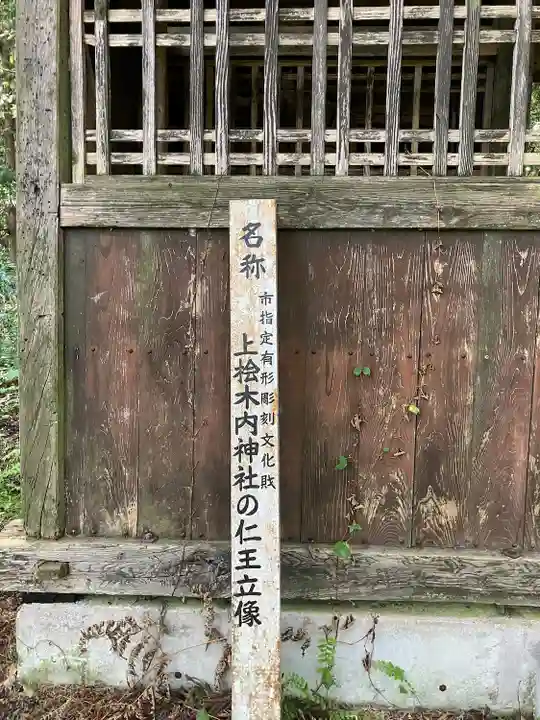 名称
市指定有形彫刻文化財
上桧木内神社の仁王立像